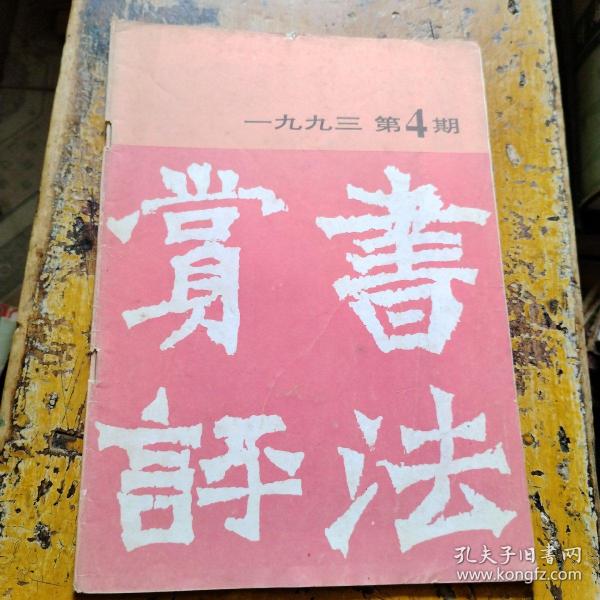 一九九三 第4期
書法
賞評
孔夫子旧書网
www.kongfz.com